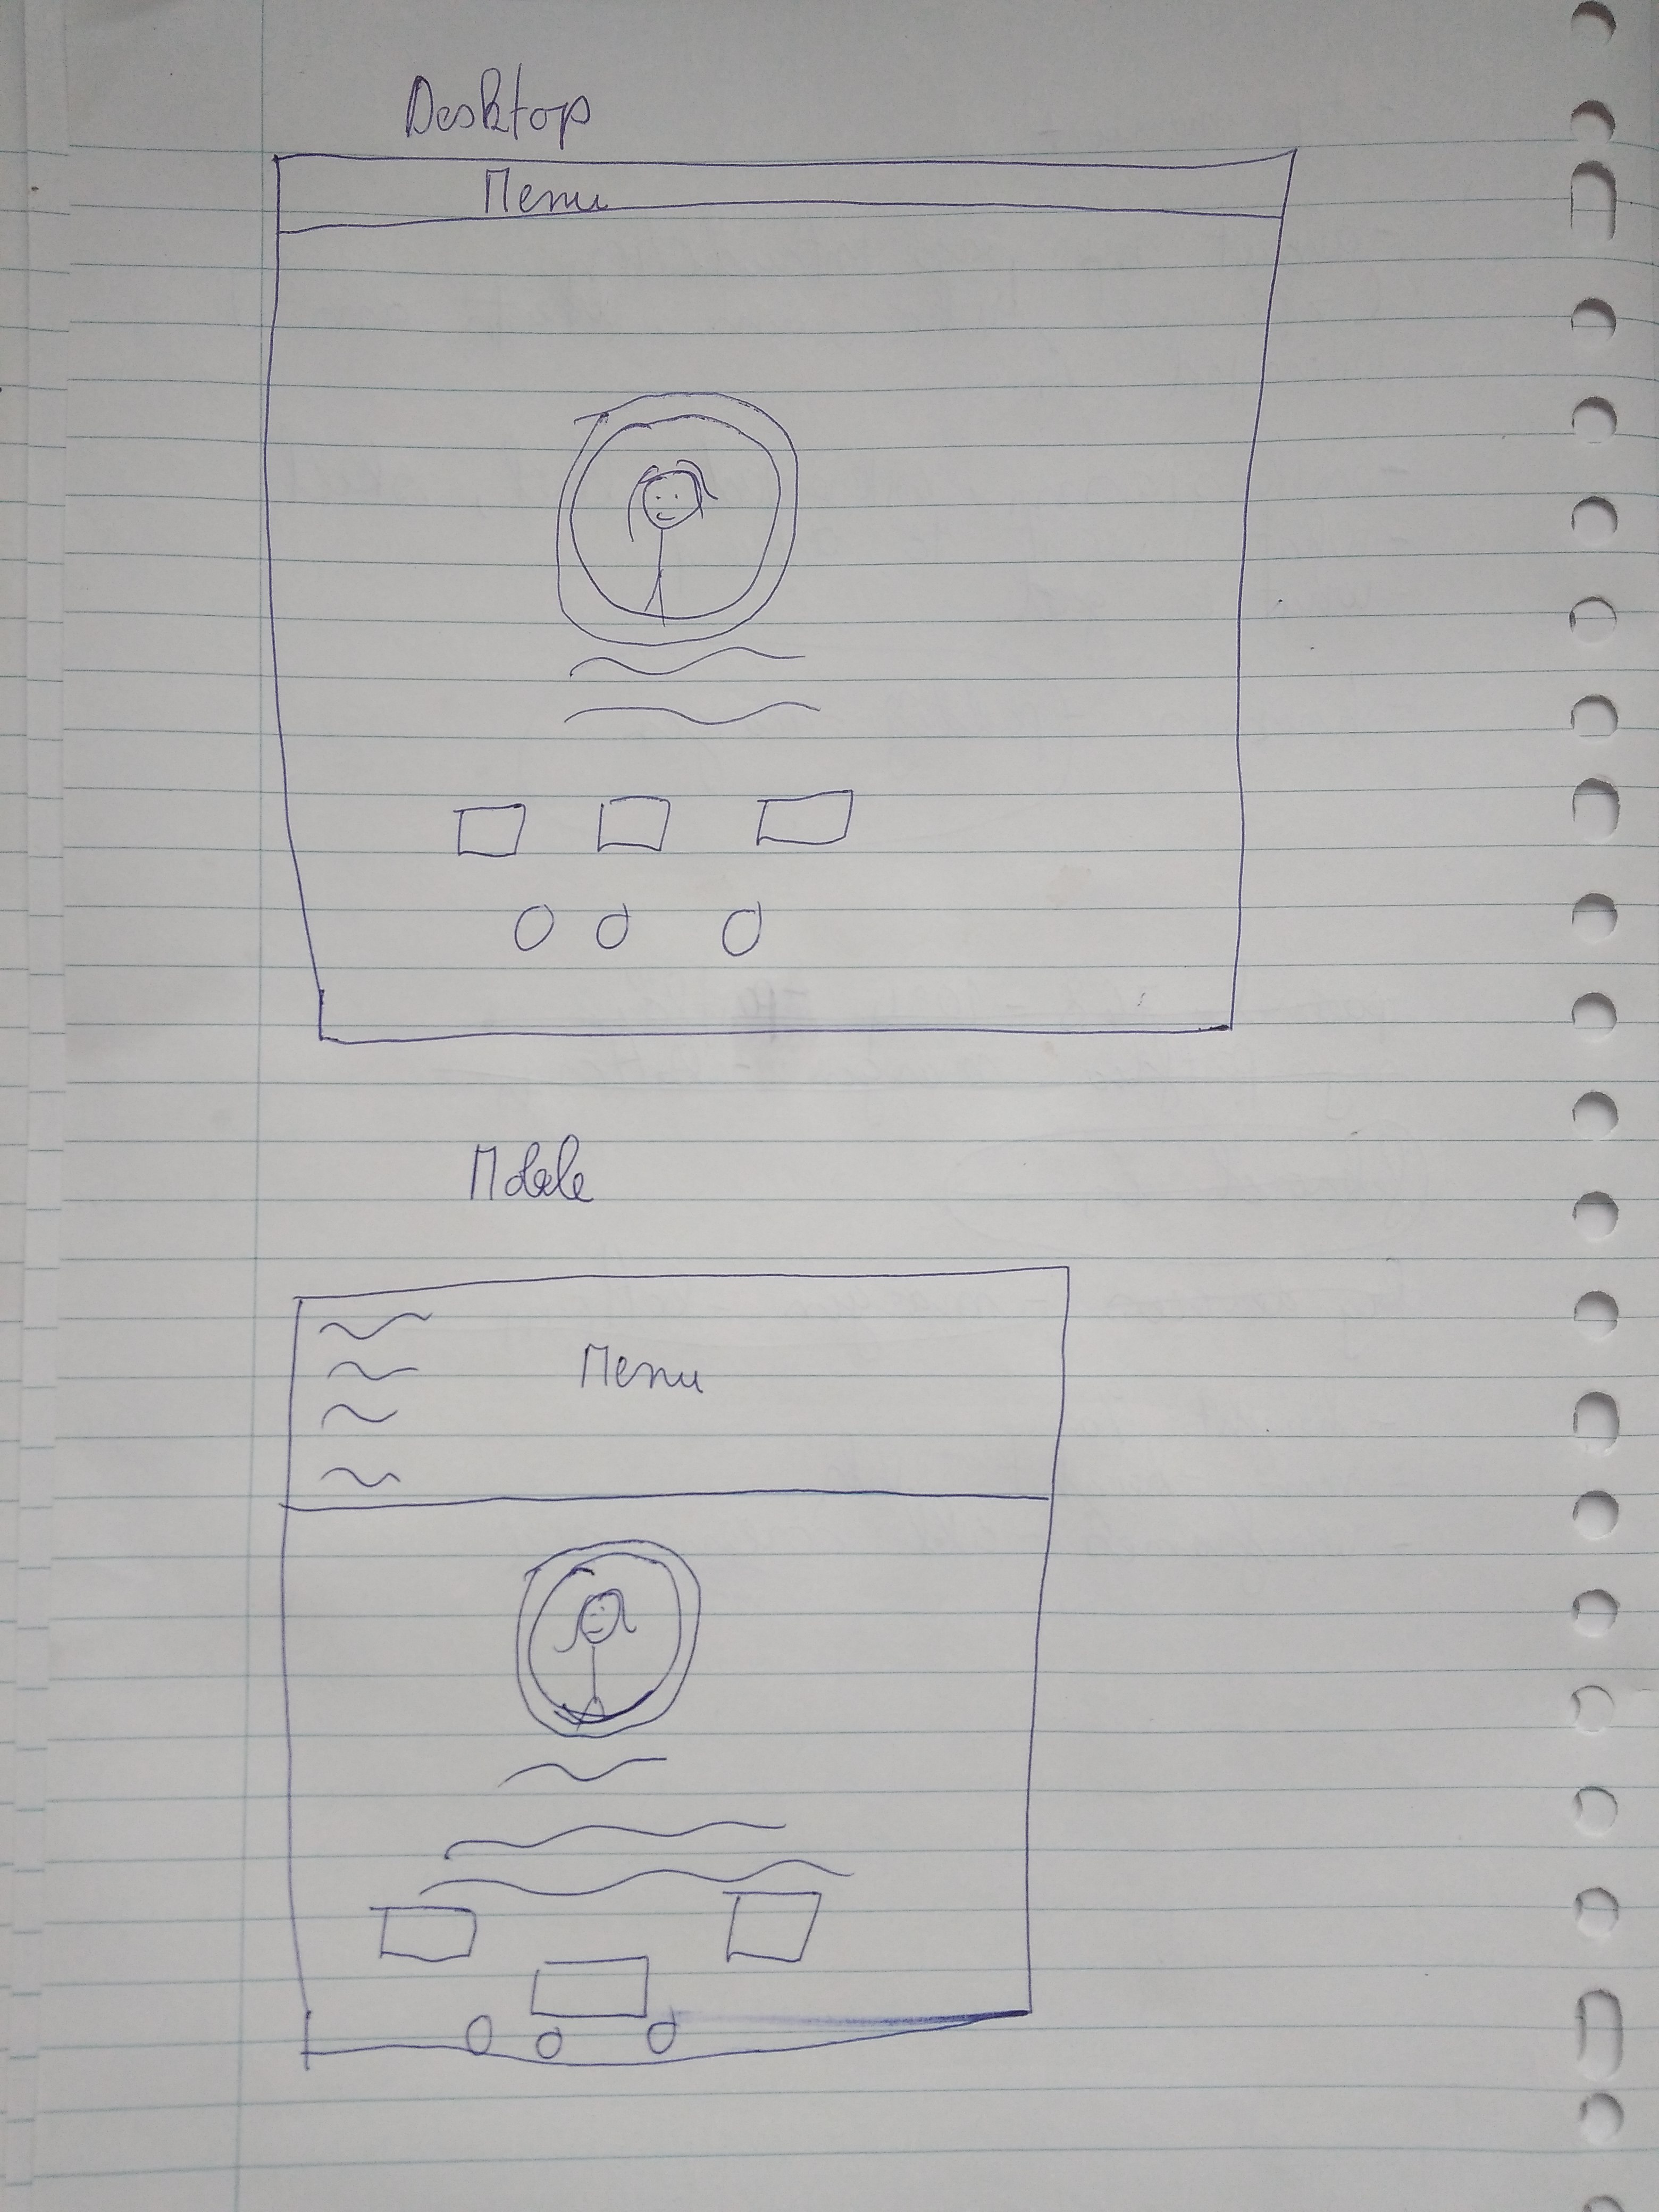 Desktop
Menu
Mobile
Menu